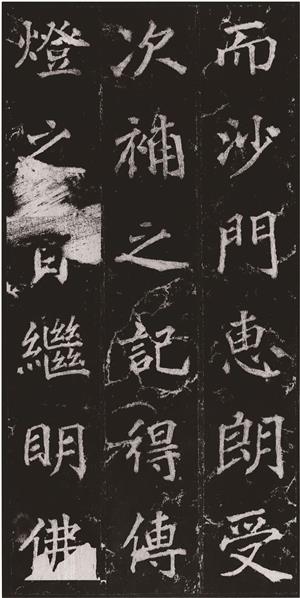 而沙門惠朗受
次補之記得傳
燈之日繼明佛